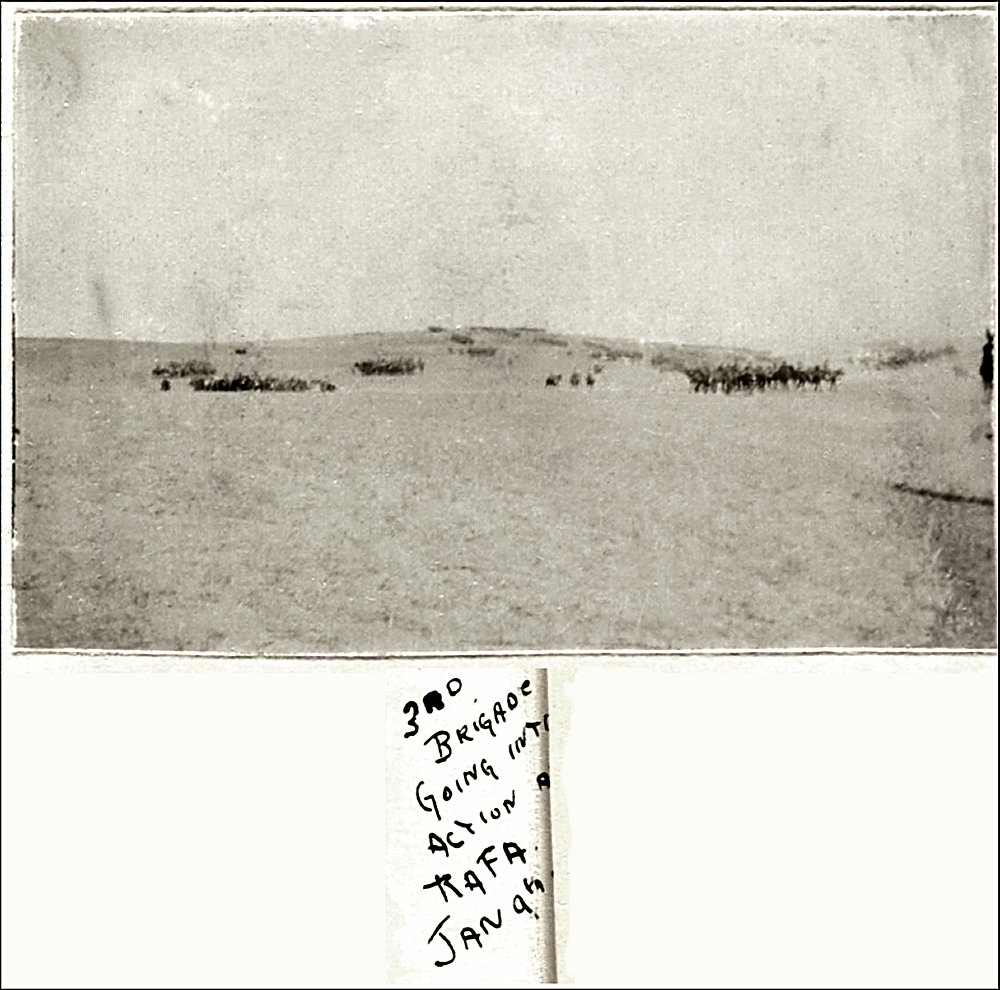 3RD.
BRIGADE
GOING INT
ACTION A
RAFA.
JAN 9th.